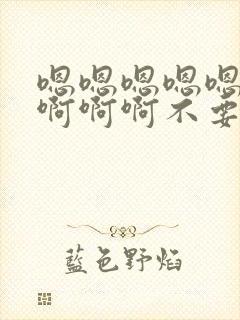 嗯嗯嗯嗯嗯
啊啊啊不要
藍色野焰